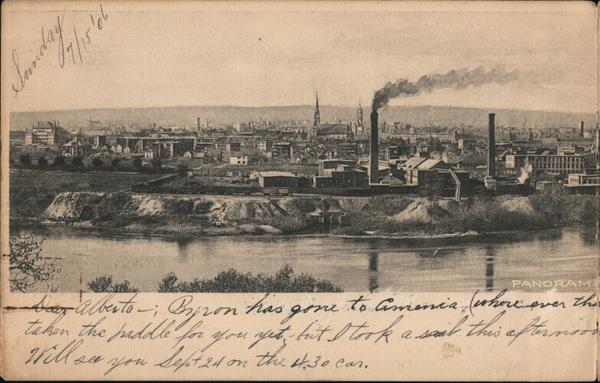 Sunday
7/15 '06
PANORAMA
Dear Alberto-; Byron has gone to Amenia, (where ever
taken the paddle for you yet, but I took a sail this afternoon
Will see you Sept 24 on the 4.30 car.